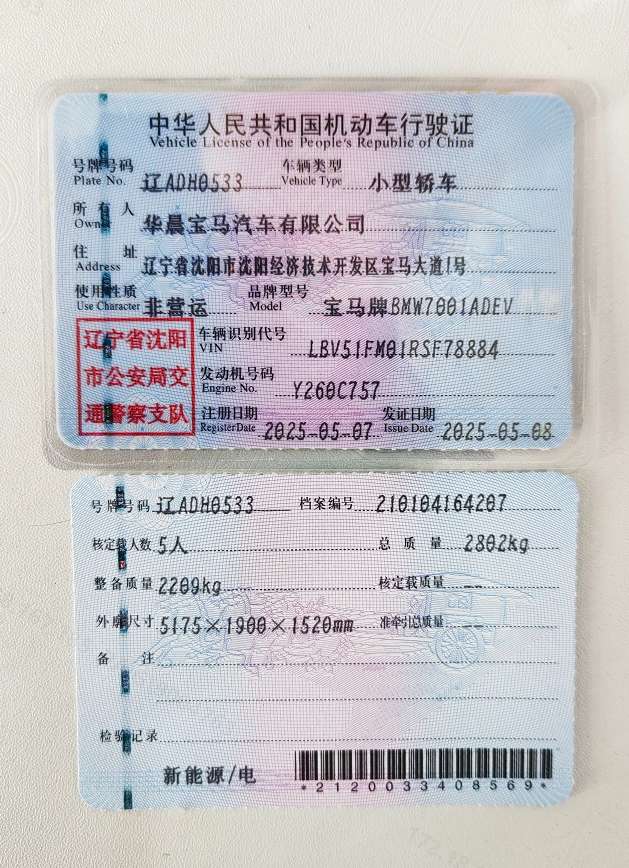 中华人民共和国机动车行驶证
Vehicle License of the People's Republic of China
号牌号码 辽ADH0533 车辆类型 小型轿车
Plate No. Vehicle Type
所有人 华晨宝马汽车有限公司
Owner
住址 辽宁省沈阳市沈阳经济技术开发区宝马大道1号
Address
使用性质 非营运 品牌型号 宝马牌BMW7001ADEV
Use Character Model
辽宁省沈阳
市公安局交
通警察支队
车辆识别代号 LBV51FM01RSF78884
VIN
发动机号码 Y260C757
Engine No.
注册日期 2025-05-07 发证日期 2025-05-08
Register Date Issue Date
号牌号码 辽ADH0533 档案编号 210104164207
核定载人数 5人 总质量 2802kg
整备质量 2209kg 核定载质量 --
外廓尺寸 5175×1900×1520mm 准牵引总质量 --
备注
检验记录
新能源/电
*2120033408569*